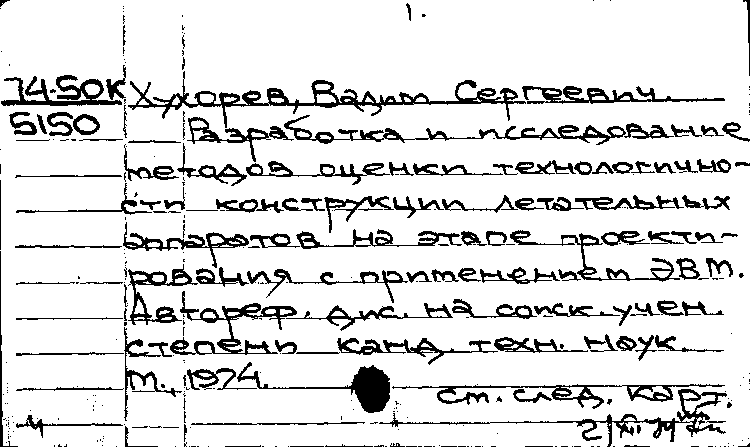 1.
74-50К Хухорев, Вадим Сергеевич.
5150 Разработка и исследование
методов оценки технологично-
сти конструкции летательных
аппаратов на этапе проекти-
рования с применением ЭВМ.
Автореф. дис. на соиск. учен.
степени канд. техн. наук.
М., 1974.
см. след. карт.
21/XI 74